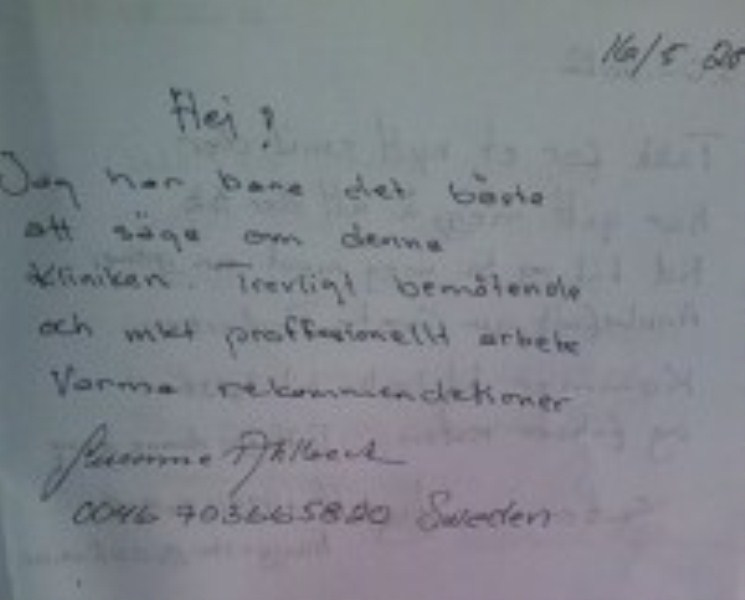 16/5 20
Hej !
Jag har bare det bäste
att säge om denne
kliniken. Trevligt bemötende
och mkt proffesionellt arbete
Varma rekommendetioner
Susanne Ahlbeck
0046 703665820 Sweden